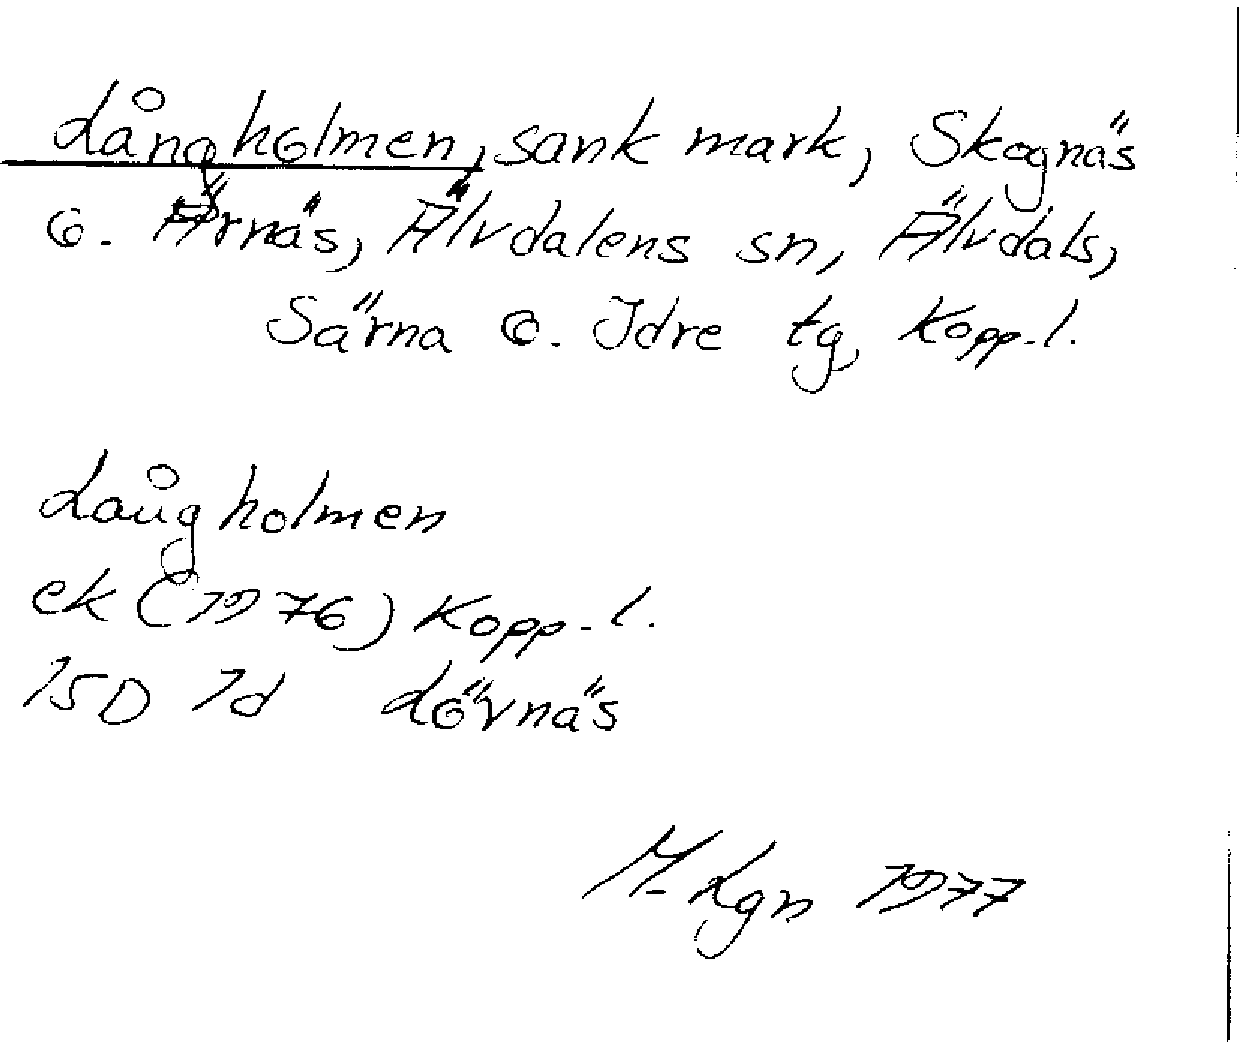 Långholmen, sank mark, Skognäs
o. Ärnäs, Älvdalens sn, Älvdals,
Särna o. Idre tg, Kopp. l.
Långholmen
ek (1976) Kopp. l.
15D 1d Lövnäs
M. Lgn 1977